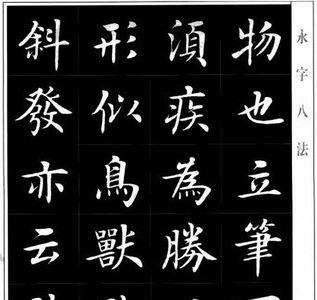 永字八法
物也立筆
須疾為勝
形似鳥獸
斜發亦云